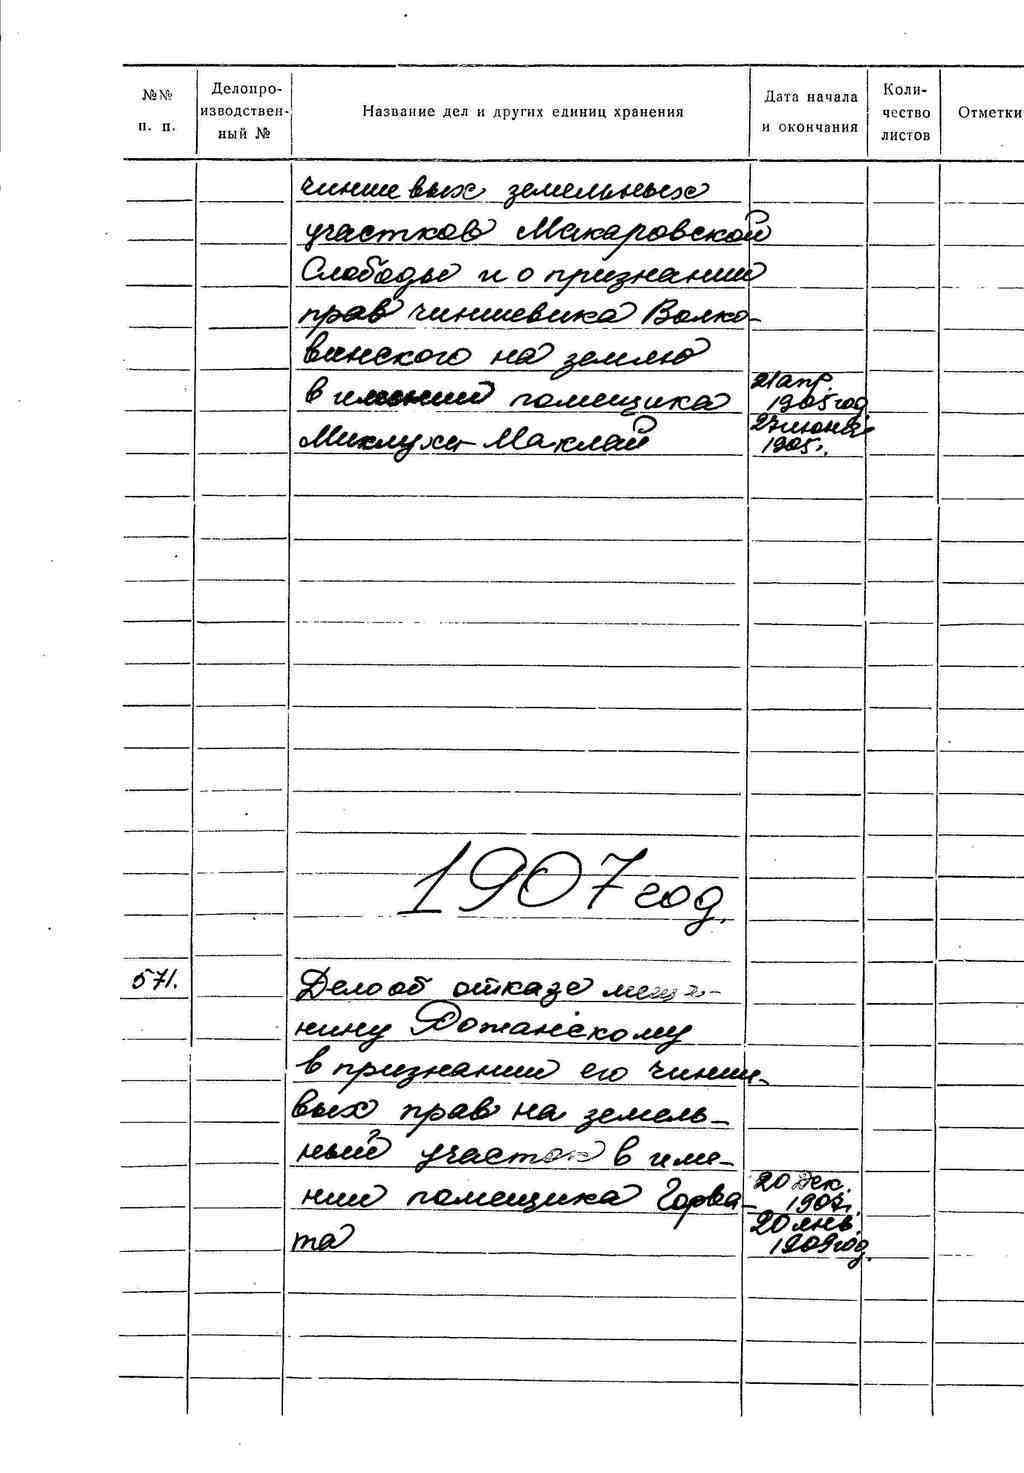 №№ п. п.
Делопро-
изводствен-
ный №
Название дел и других единиц хранения
Дата начала
и окончания
Коли-
чество
листов
Отметки
чиншевых земельных
участков Макаровской
Слободы и о признании
прав чиншевика Волко-
винского на землю
в имении помещика
Миклухи-Маклай
21 апр.
1905 год
27 июня
1905г.
1907 год.
571.
Дело об отказе меща-
нину Рожанскому
в признании его чинше-
вых прав на земель-
ный участок в име-
нии помещика Горва-
та
20 дек.
1907г.
20 янв.
1909 год.